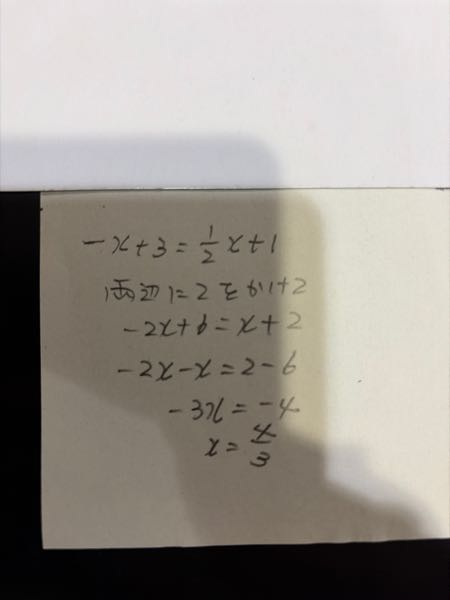 -x+3=1/2x+1
両辺に2をかけて
-2x+6=x+2
-2x-x=2-6
-3x=-4
x=4/3